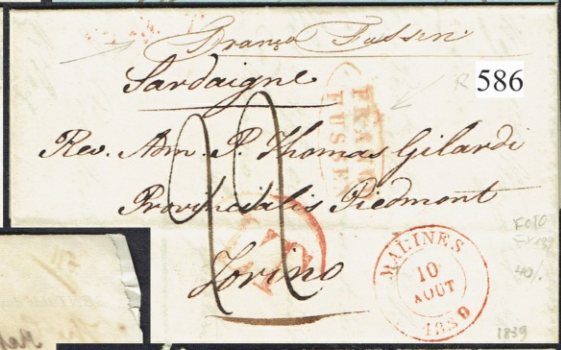 Franco Fussen
Sardaigne
586
FRANCO
FUSSEN
Rev. Adm. P. Thomas Gilardi
Provincialis Piedmont
Torino
MALINES
10
AOUT
1839
40/.
1839